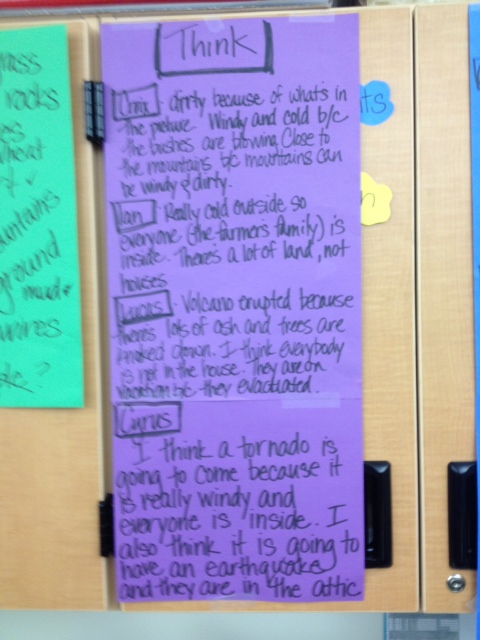 Think
dirty because of whats in
the picture. Windy and cold b/c
the bushes are blowing Close to
the mountains b/c mountains can
be windy & dirty.
Ian Really cold outside so
everyone (the farmers family) is
inside. Theres a lot of land, not
houses
Lucas - Volcano erupted because
theres lots of ash and trees are
knocked down. I think everybody
is not in the house. They are on
vacation b/c they
Cyrus
I think a tornado is
going to come because it
is really windy and
everyone is inside. I
also think it is going to
have an earthquake
and they are in the attic
rass
rocks
wheat
untains
ground
wires
ts